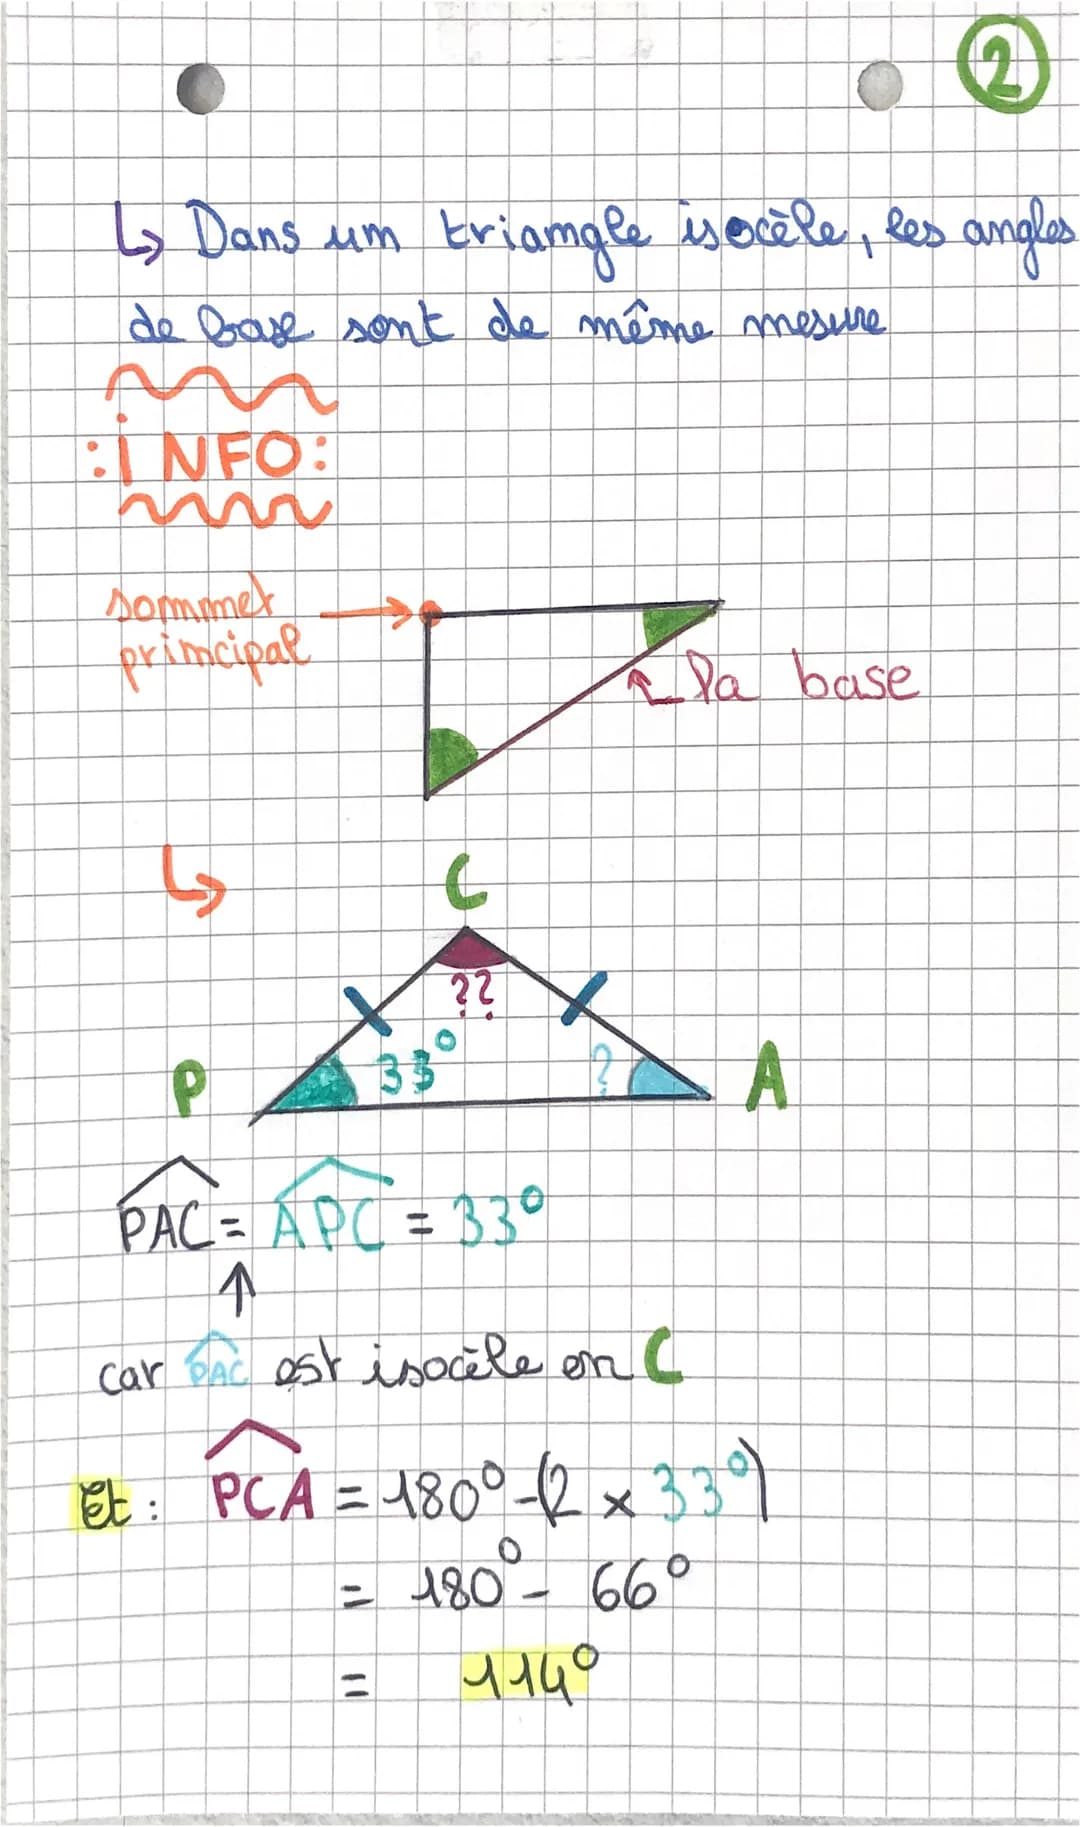 2
↳ Dans un triangle isocèle, les angles
de base sont de même mesure
:iNFO:
sommet →
principal
la base
↳
C
??
P 33° ? A
PAC = APC = 33°
↑
car PAC est isocèle en C
Et : PCA = 180° - (2 x 33°)
= 180° - 66°
= 114°